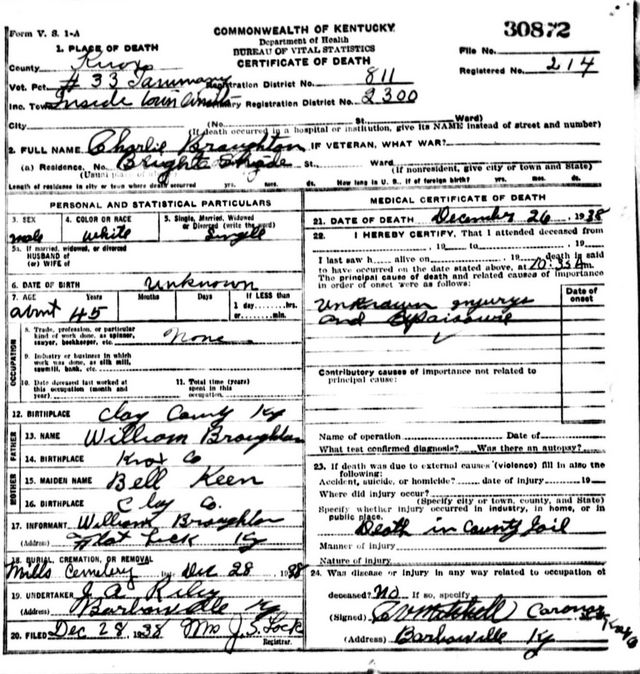 Form V. S. 1-A
COMMONWEALTH OF KENTUCKY
Department of Health
BUREAU OF VITAL STATISTICS
CERTIFICATE OF DEATH
30872
File No.
Registered No. 214
1. PLACE OF DEATH
County Knox
Vot. Pct. # 33 Registration District No. 811
Inc. Town Inside town limits Primary Registration District No. 2300
City (No. St. Ward)
(If death occurred in a hospital or institution, give its NAME instead of street and number)
2. FULL NAME Charlie Broughton IF VETERAN, WHAT WAR?
(a) Residence. No. Brights Shade St., Ward.
(Usual place of abode) (If nonresident, give city or town and State)
Length of residence in city or town where death occurred yrs. mos. ds. How long in U. S., if of foreign birth? yrs. mos. ds.
PERSONAL AND STATISTICAL PARTICULARS
3. SEX
male
4. COLOR OR RACE
White
5. Single, Married, Widowed
or Divorced (write the word)
Single
5a. If married, widowed, or divorced
HUSBAND of
(or) WIFE of
6. DATE OF BIRTH Unknown
7. AGE Years Months Days If LESS than
about 45 1 day, hrs.
or min.
OCCUPATION
8. Trade, profession, or particular
kind of work done, as spinner,
sawyer, bookkeeper, etc. None
9. Industry or business in which
work was done, as silk mill,
sawmill, bank, etc.
10. Date deceased last worked at
this occupation (month and
year)
11. Total time (years)
spent in this
occupation
12. BIRTHPLACE Clay County Ky
FATHER
13. NAME William Broughton
14. BIRTHPLACE Knox Co
MOTHER
15. MAIDEN NAME Bell Keen
16. BIRTHPLACE Clay Co.
17. INFORMANT William Broughton
(Address) Flat Lick Ky
18. BURIAL, CREMATION, OR REMOVAL
Mills Cemetery Dec 28 1938
19. UNDERTAKER J. A. Riley
(Address) Barbourville Ky
20. FILED Dec 28, 1938 Mrs J. S. Lock
Registrar.
MEDICAL CERTIFICATE OF DEATH
21. DATE OF DEATH December 26, 1938
22. I HEREBY CERTIFY, That I attended deceased from
, 19 to , 19
I last saw h alive on , 19 death is said
to have occurred on the date stated above, at 10:35 Am
The principal cause of death and related causes of importance
in order of onset were as follows:
Date of
onset
Unknown injurys
and
Contributory causes of importance not related to
principal cause:
Name of operation Date of
What test confirmed diagnosis? Was there an autopsy?
23. If death was due to external causes (violence) fill in also the
following:
Accident, suicide, or homicide? date of injury 19
Where did injury occur?
(Specify city or town, county, and State)
Specify whether injury occurred in industry, in home, or in
public place.
Death in County Jail
Manner of injury
Nature of injury
24. Was disease or injury in any way related to occupation of
deceased? NO If so, specify
(Signed) Mitchell Coroner
(Address) Barbourville Ky